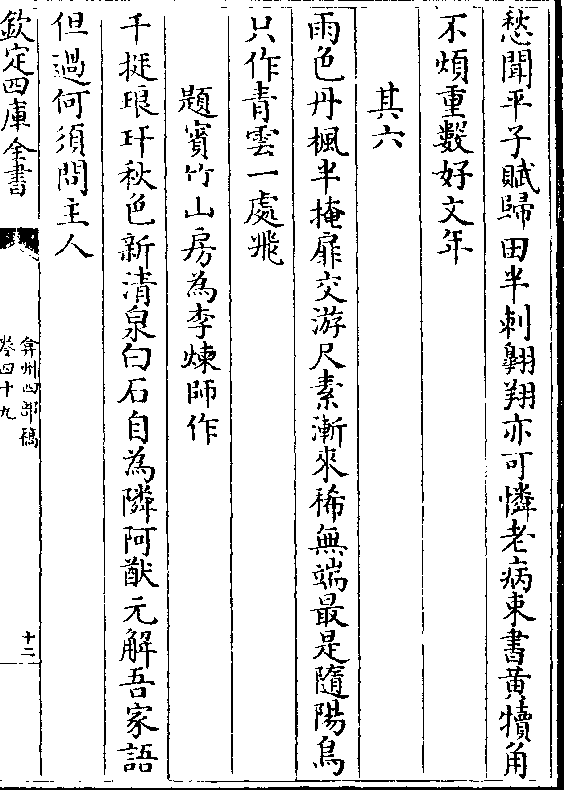 愁聞平子賦歸田半刺翺翔亦可憐老病束書黄犢角
不煩重數好文年
其六
雨色丹楓半掩扉交游尺素漸來稀無端最是隨陽鳥
只作青雲一處飛
題賓竹山房為李煉師作
千挺琅玕秋色新清泉白石自為隣阿猷元解吾家語
但過何須問主人
欽定四庫全書
弇州四部稿
卷四十九
十二